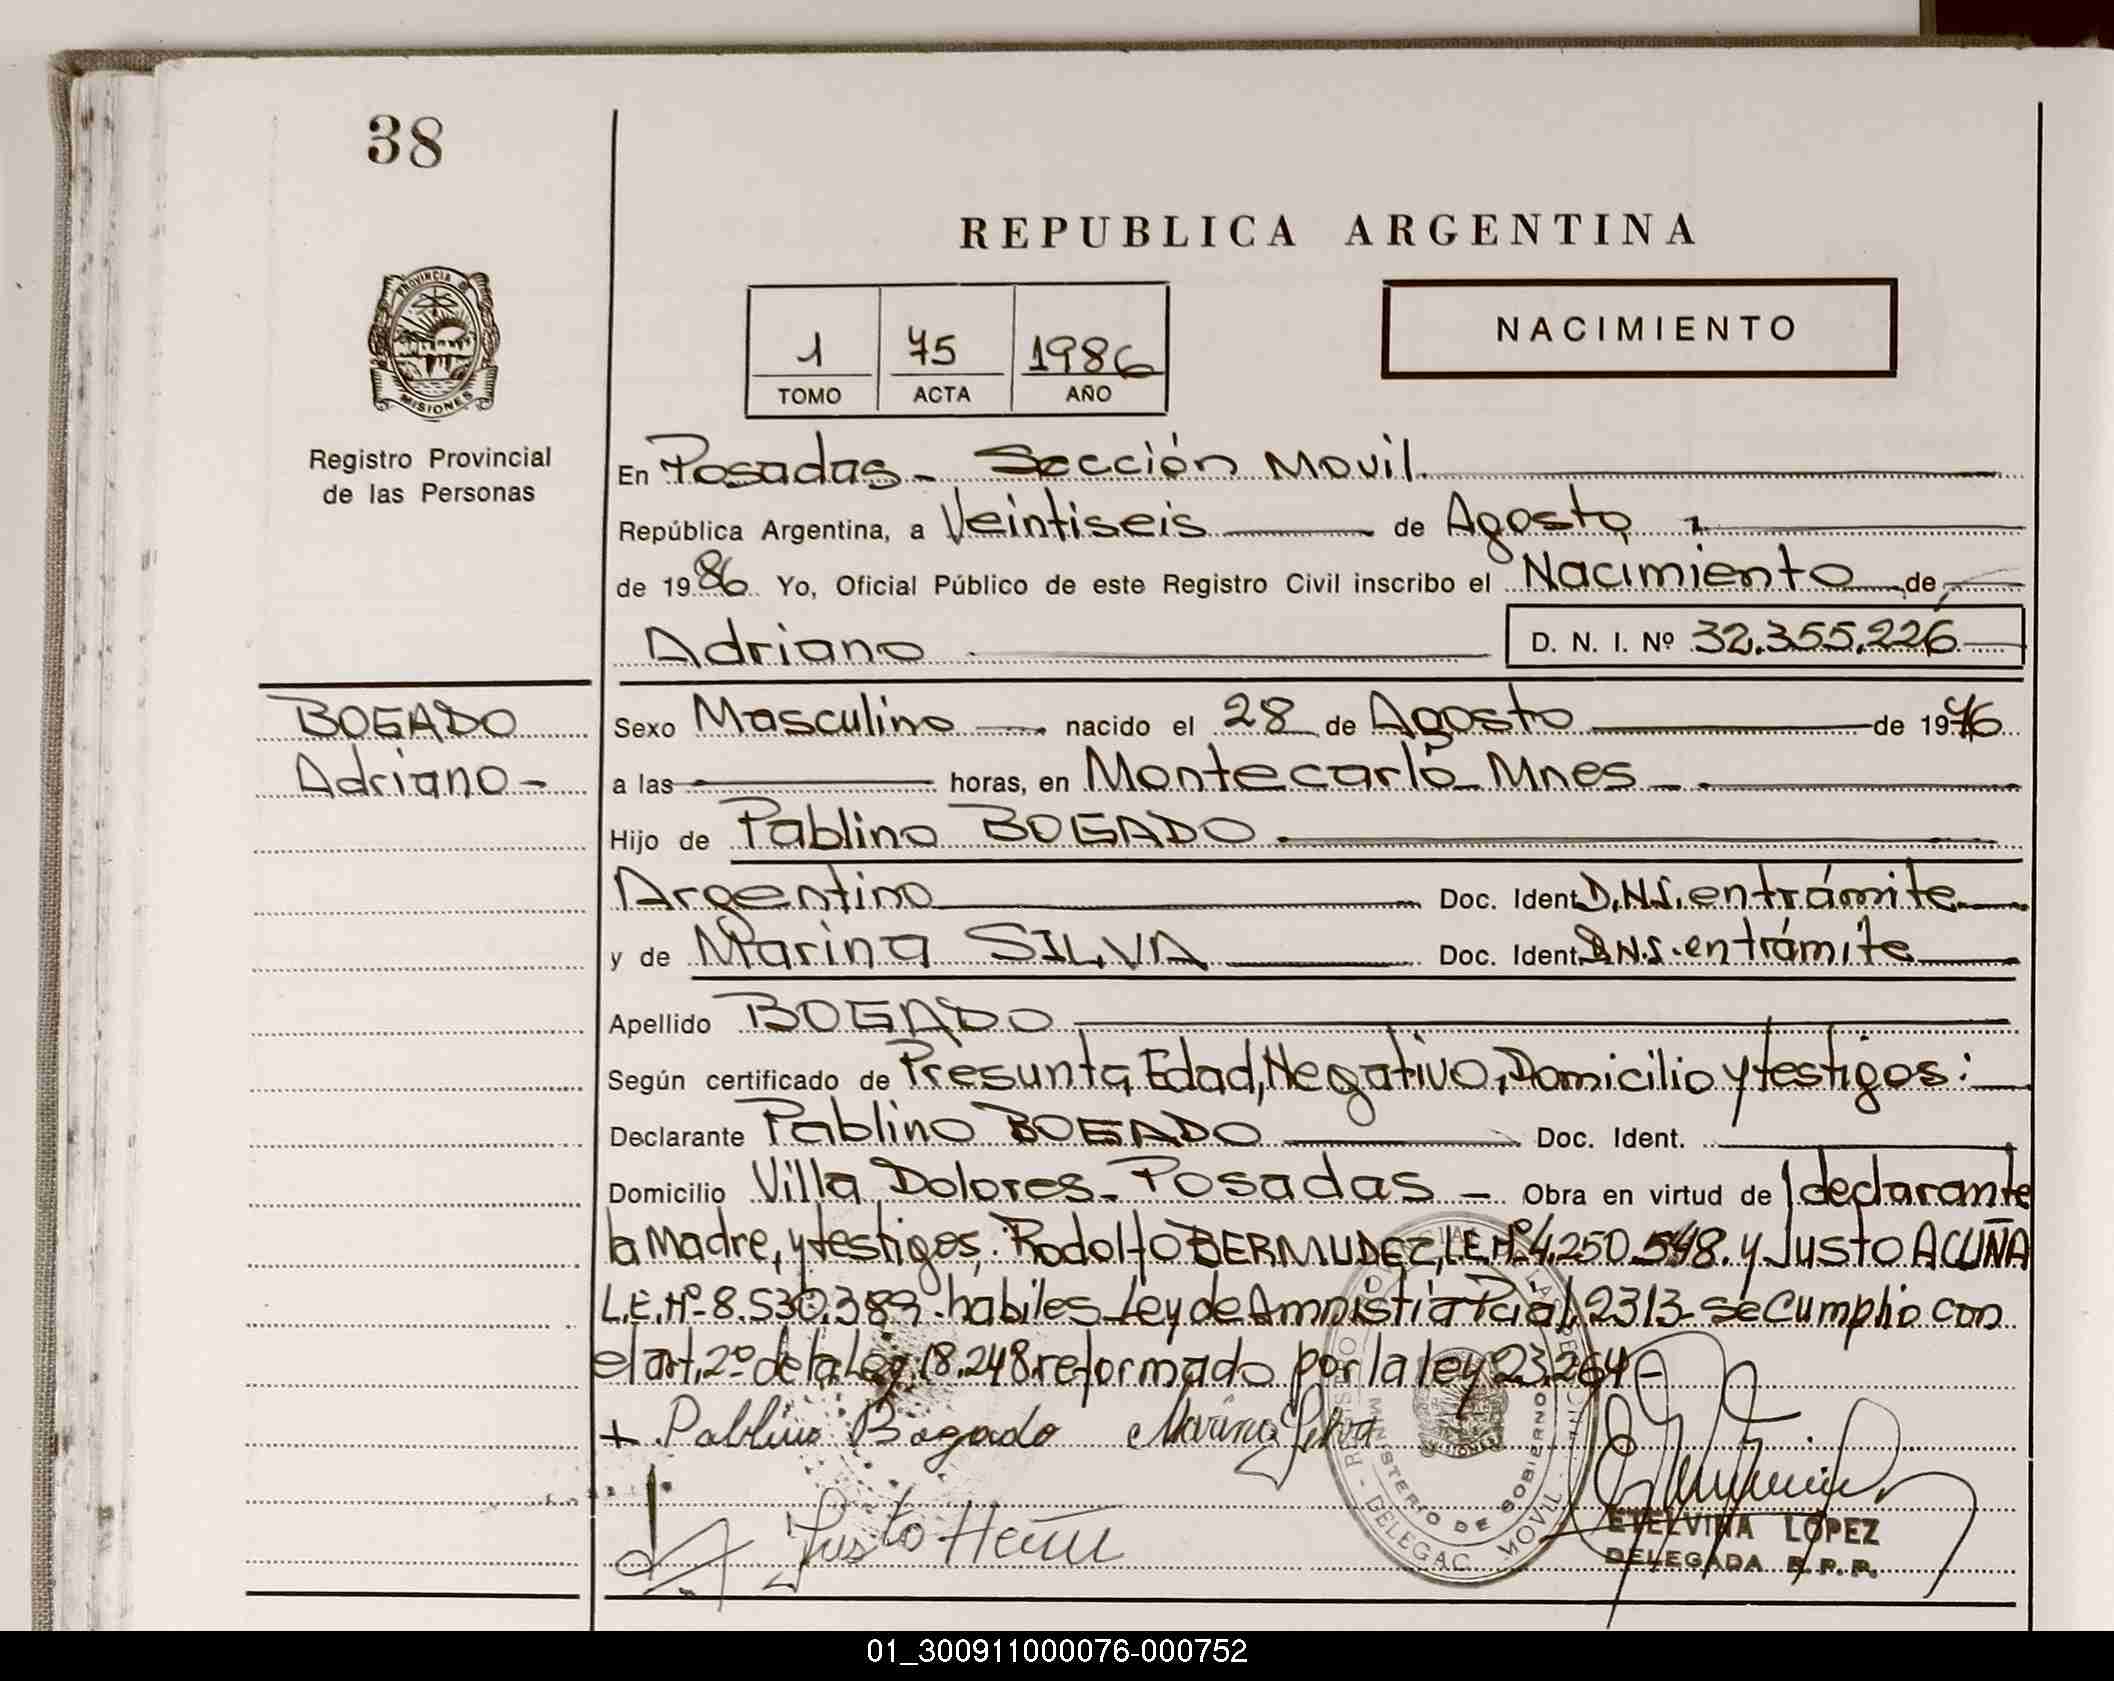 38
REPUBLICA ARGENTINA
PROVINCIA DE
MISIONES
1 75 1986
TOMO ACTA AÑO
NACIMIENTO
Registro Provincial
de las Personas
En Posadas - Sección Movil.
República Argentina, a Veintiseis de Agosto
de 1986. Yo, Oficial Público de este Registro Civil inscribo el Nacimiento de
Adriano D. N. I. Nº 32.355.226
BOGADO
Adriano-
Sexo Masculino nacido el 28 de Agosto de 1976
a las horas, en Montecarlo Mnes
Hijo de Pablino BOGADO
Argentino Doc. Ident. D.N.I. en trámite
y de Marina SILVA Doc. Ident. D.N.I. en trámite
Apellido BOGADO
Según certificado de Presunta Edad, Negativo, Domicilio y testigos:
Declarante Pablino BOGADO Doc. Ident.
Domicilio Villa Dolores - Posadas - Obra en virtud de declarante
la Madre, y testigos: Rodolfo BERMUDEZ, L.E.Nº 4.250.548. y Justo ACUÑA
L.E.Nº- 8.530.389 habiles Ley de Amnistia Pcial, 2313- se Cumplio con
el art. 2º de la Ley 18.248 reformado por la ley 23.264-
+ Pablino Bogado Marina Silva
Justo
MINISTERIO DE GOBIERNO
DELEGAC. MOVIL
MISIONES
ETELVINA LOPEZ
DELEGADA R. P. P.
01_300911000076-000752